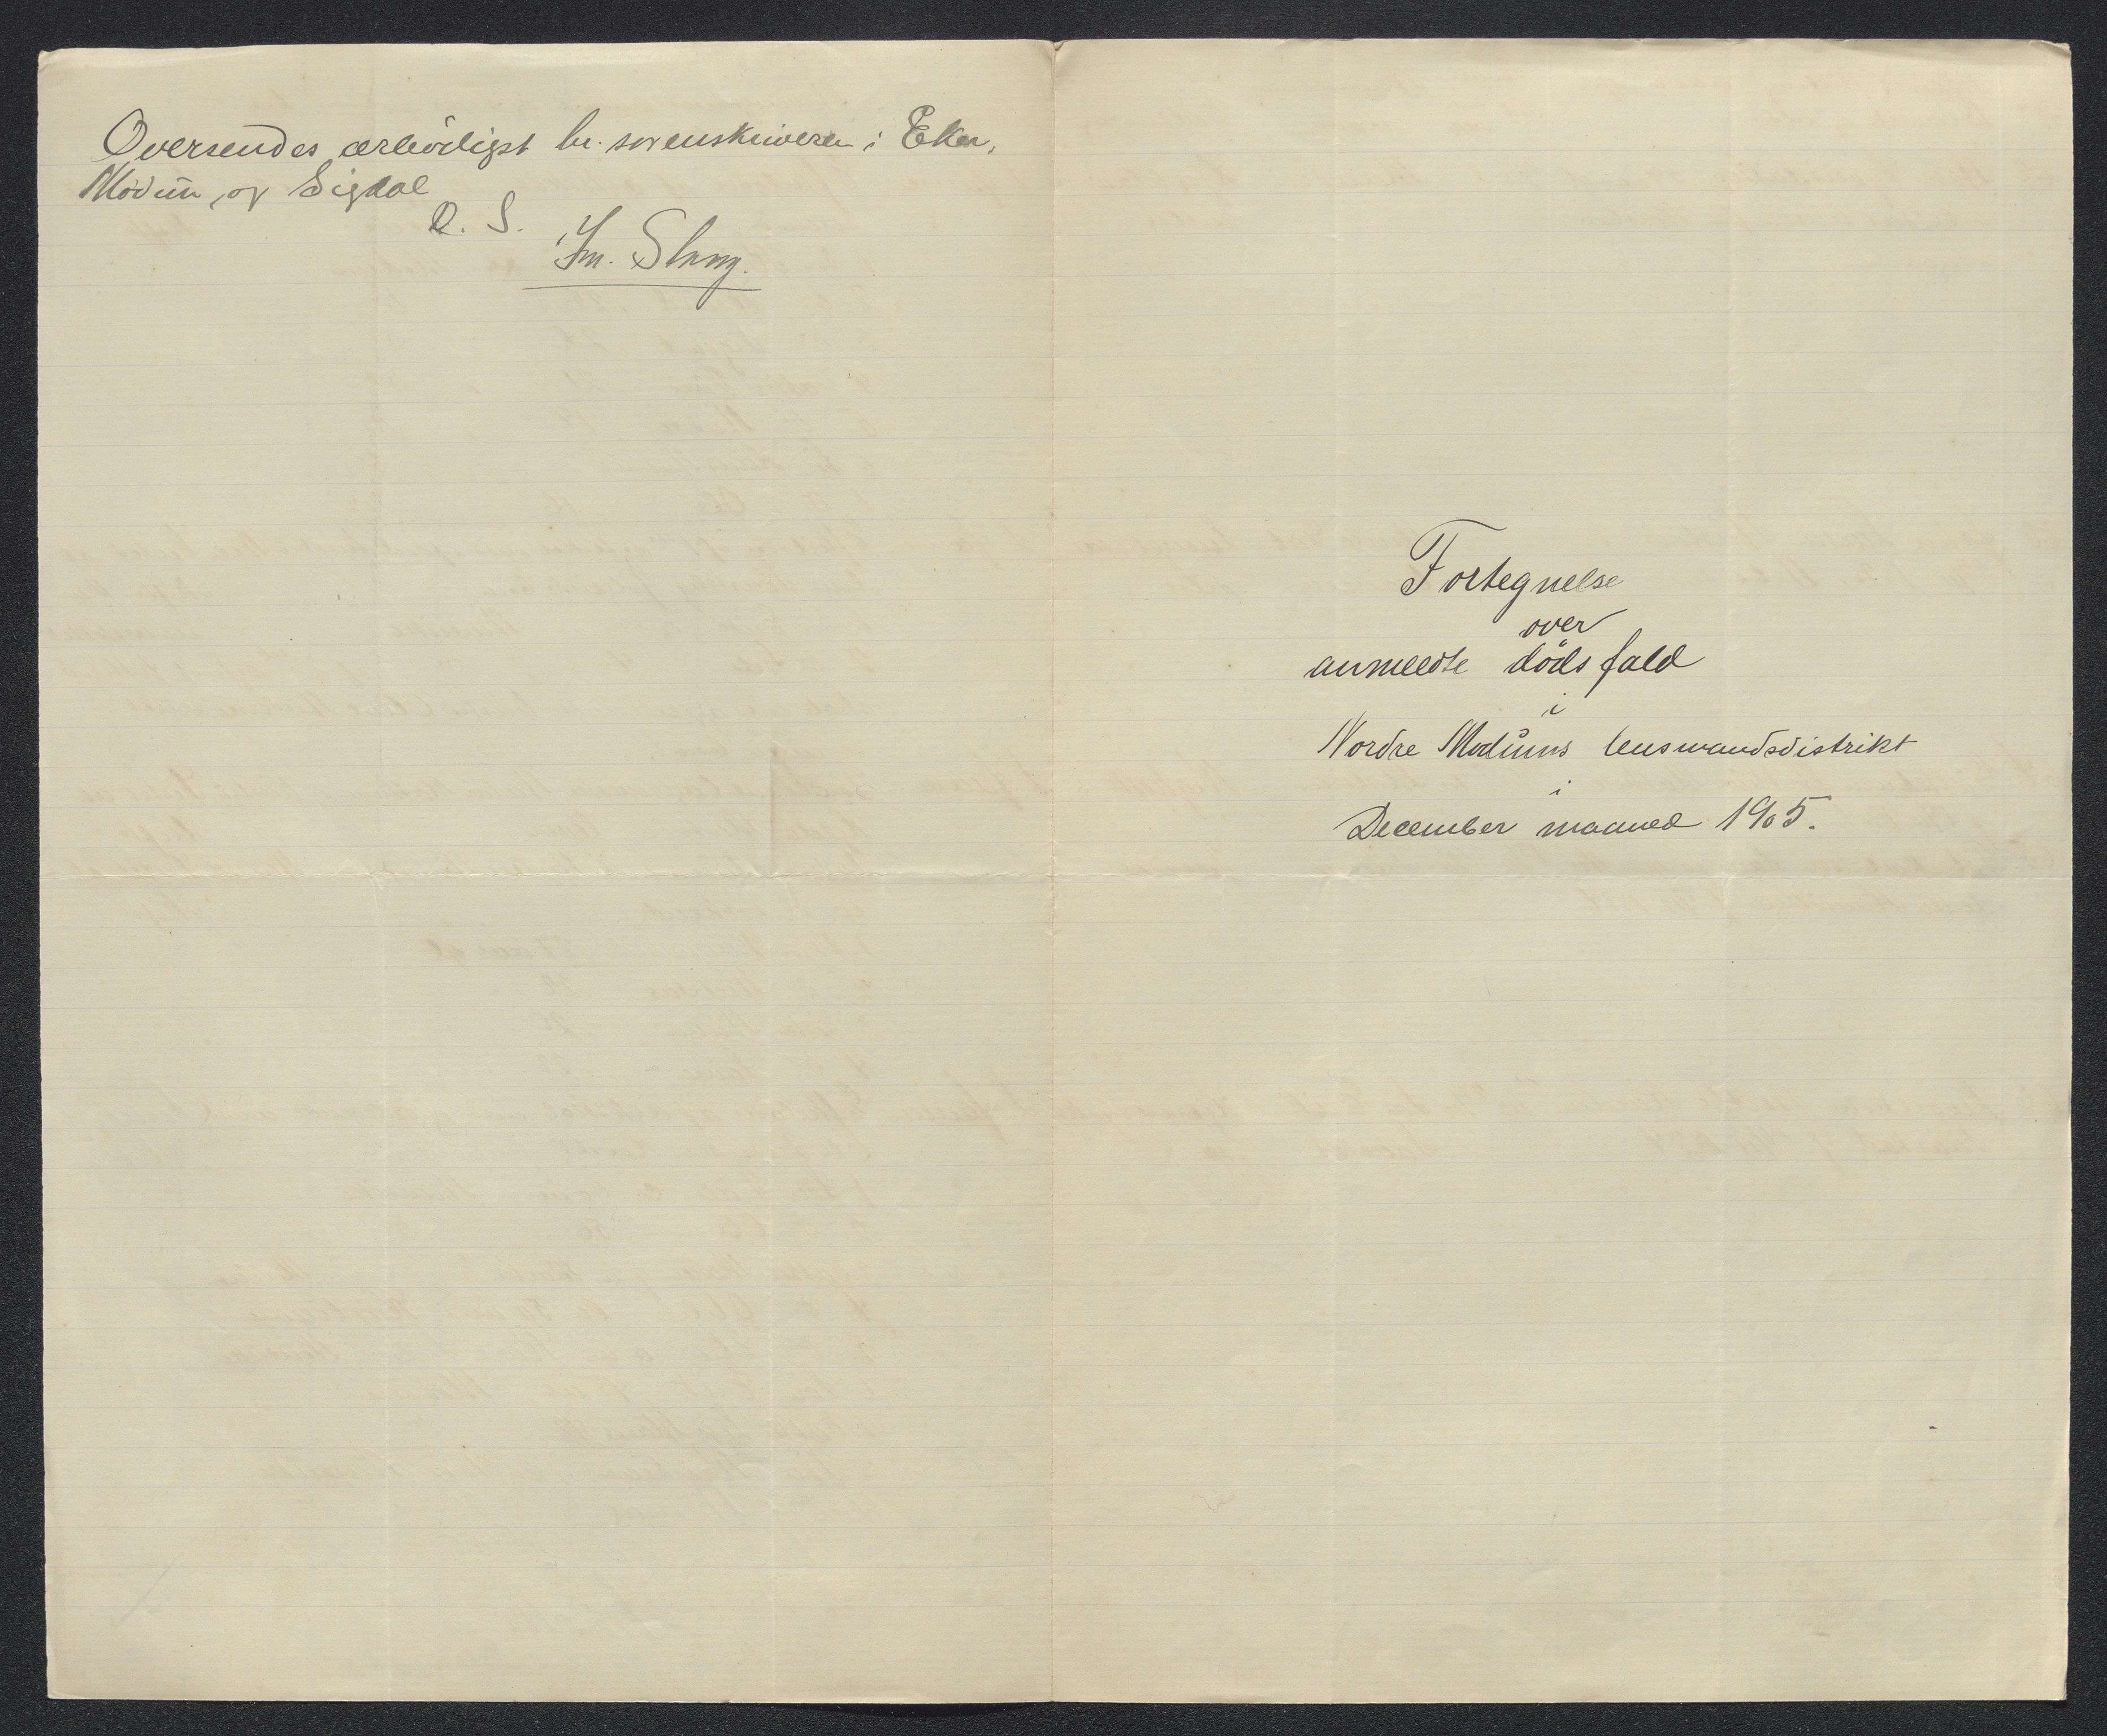 Oversendes ærbödigst hr. sorenskriveren i Eker,
Modum og Sigdal
D. S.
Fortegnelse
over
anmeldte dödsfald
i
Nordre Modums lensmandsdistrikt
i
December maaned 1905.